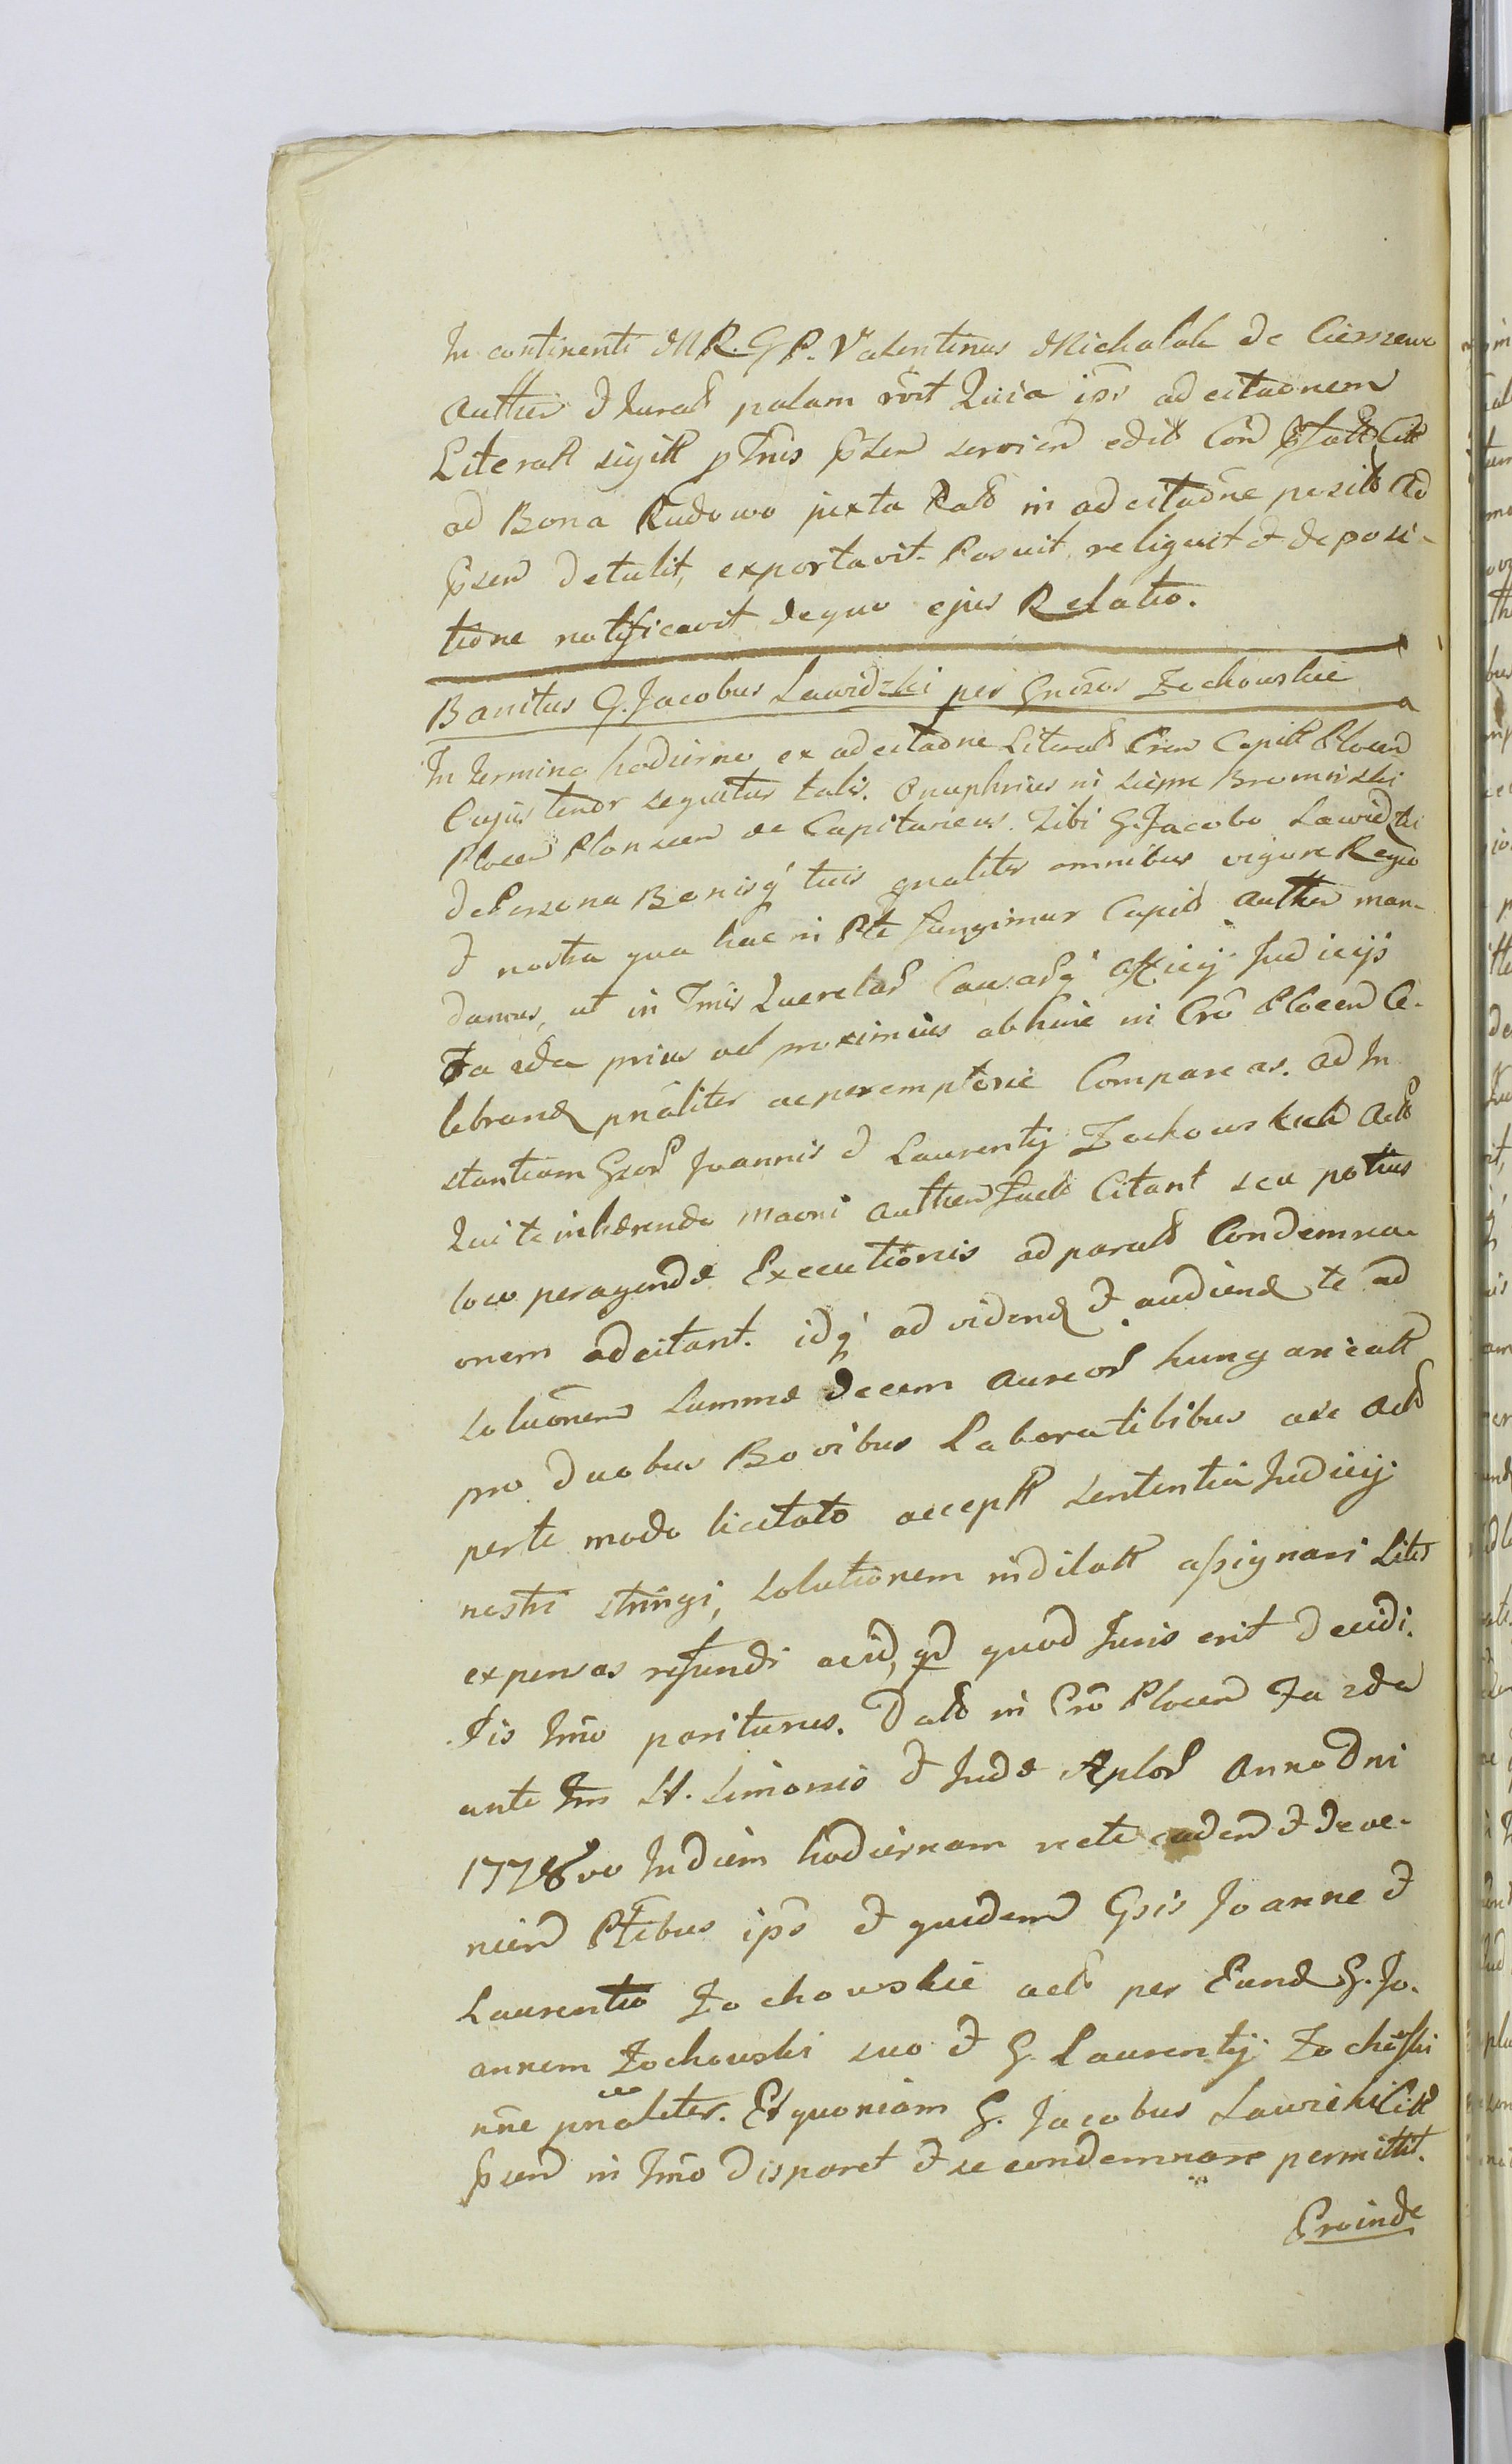 In continenti M R. G P. Valentinus Michalak de Cierszewo
Authen & Jurat palam rōvit Quia ips ad citaōnem
Literall sigill pTnis psen servien edit Con Ctall Citt
ad Bona Rudowo juxta Dato in ad citaōne posito ad
psen detulit, exportavit. Posuit reliquit & de posi-
tione notificavit dequo ejus Relatio.
Banitus G. Jacobus Lawidzki per Gnōsos Żochowskie
In termino hodierno ex ad citaōne Literalt Cren Capitt Plocen
Cujus tenor sequitur talis. Onuphrius in sieprc Bromirski
Plocen Plonscen de Capitaneus. Tibi G. Jacobo Lawidzki
de Persona Bonisq tuis gnaliter omnibus vigore Regia
& nostra qua hac in Pte fungimur Capit Authen man-
damus, ut in Tmis Querelar Causarq Officij Judicijs
Fa 2da prius vel proximius abhinc in Crō Plocen Ce-
lebrand pnāliter ac peremptorie Compareas. ad In
stantiam Gsor Joannis & Laurentij Zochowskich Act
Qui te inhærendo maori Authen Juclt Citant seu potius
loco peragendæ Executionis ad paratt Condemna-
onem adcitant. idq ad vidend & audiend te ad
soluōnem summæ decem aureor hungaricall
pro duobus Bovibus Laboratibibus ase act
per te modo licitato accept sententia Judicij
nostri stringi, solutionem indilatt assignari Lites
expensas refundi acid, qd quod Juris erit decidi.
Tis Tmo pariturus. Datt in Crō Plocen Fa 2da
ante Fm SS. Simonis & Judæ Aplor Anno Dni
1778vo In diem hodiernam recte caden & deve-
nien Ptibus ips & quidem Gsis Joanne &
Laurentio Zochowskie act per Eund G. Jo-
annem Zochowski suo & G. Laurentij Zochoski
nne pnaliter. Et quoniam G. Jacobus Lawicki Citt
psen in Tmo disparet & se condemnare permittit.
Proinde